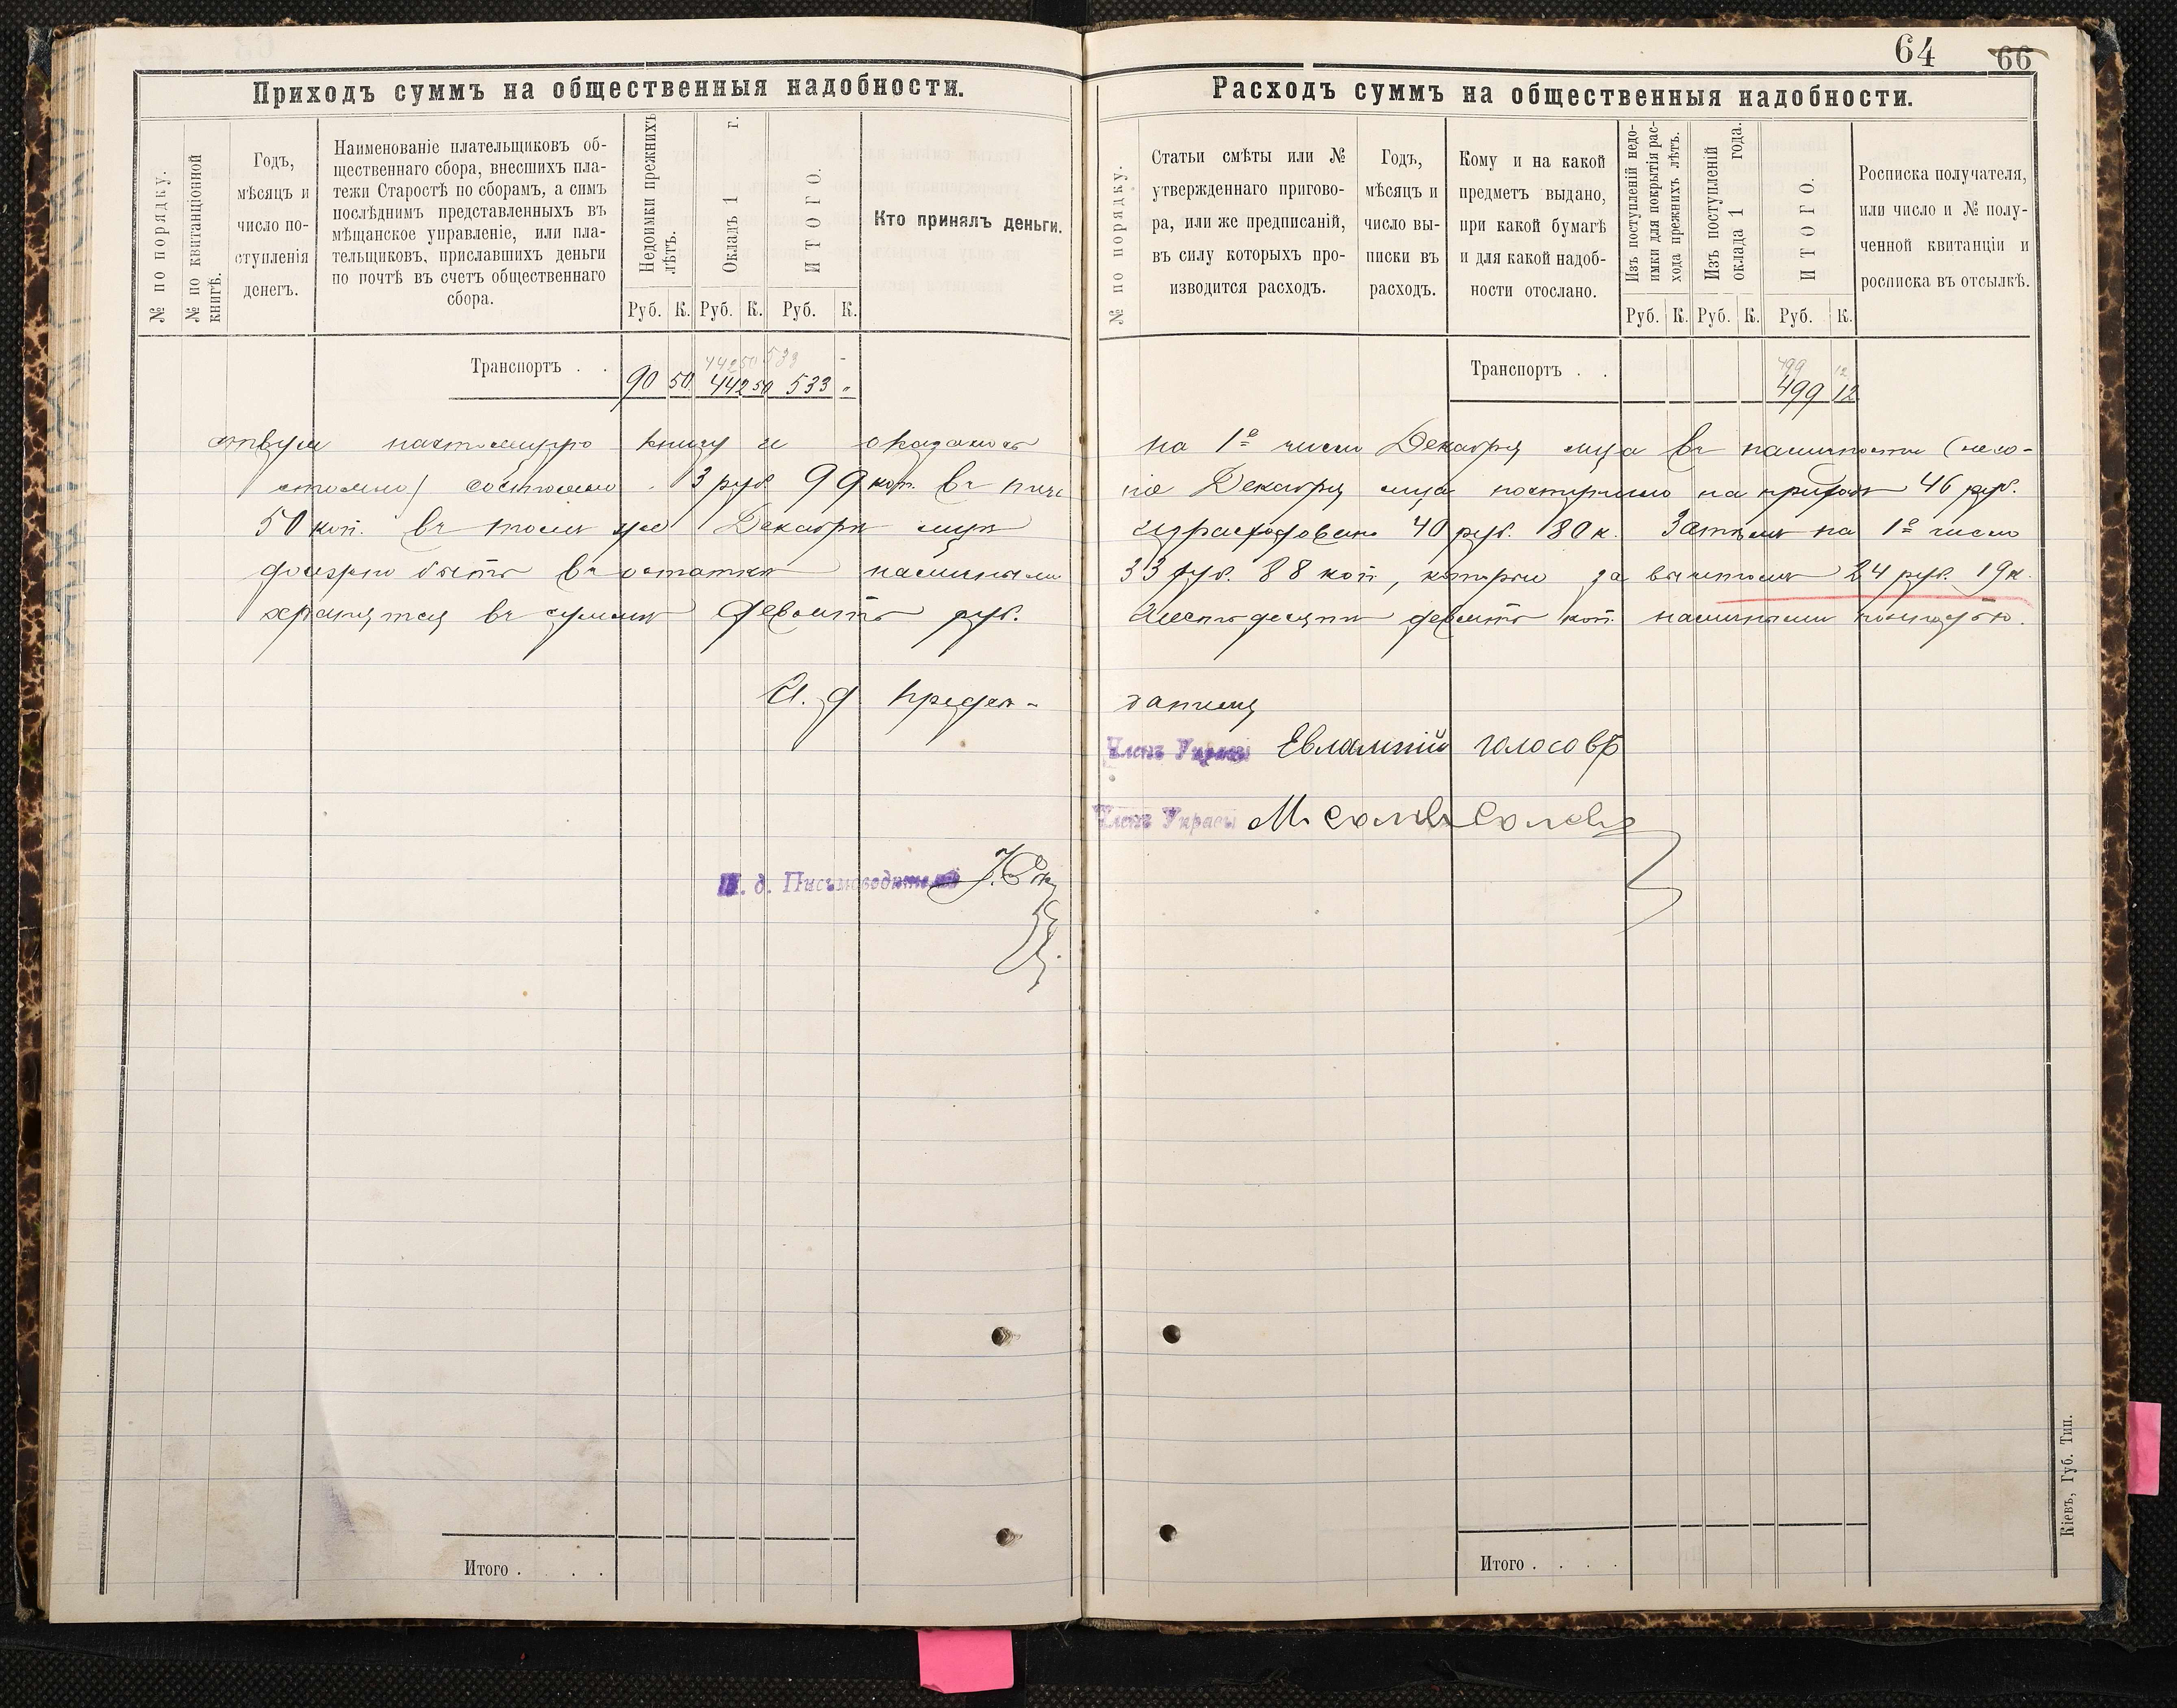 64 66
Приходъ суммъ на общественныя надобности.
№ по порядку.
№ по квитанціонной
книгѣ.
Годъ,
мѣсяцъ и
число по-
ступленія
денегъ.
Наименованіе плательщиковъ об-
щественнаго сбора, внесшихъ пла-
тежи Старостѣ по сборамъ, а симъ
послѣднимъ представленныхъ въ
мѣщанское управленіе, или пла-
тельщиковъ, приславшихъ деньги
по почтѣ въ счетъ общественнаго
сбора.
Недоимки прежнихъ
лѣтъ.
Окладъ 1 г.
ИТОГО.
Кто принялъ деньги.
Руб. К. Руб. К. Руб. К.
Транспортъ . .
442 50 533 -
90 50 442 50 533 "
книгу и оказалось
3 руб. 99 коп. въ
50 коп. въ томъ же Декабрѣ
должно быть въ остаткѣ наличными
хранятся въ суммѣ девять руб.
И. д. предсѣ-
И. д. Письмоводителя
Расходъ суммъ на общественныя надобности.
№ по порядку.
Статьи смѣты или №
утвержденнаго пригово-
ра, или же предписаній,
въ силу которыхъ про-
изводится расходъ.
Годъ,
мѣсяцъ и
число вы-
писки въ
расходъ.
Кому и на какой
предметъ выдано,
при какой бумагѣ
и для какой надоб-
ности отослано.
Изъ поступленій недо-
имки для покрытія рас-
хода прежнихъ лѣтъ.
Изъ поступленій
оклада 1 года.
ИТОГО.
Росписка получателя,
или число и № полу-
ченной квитанціи и
росписка въ отсылкѣ.
Руб. К. Руб. К. Руб. К.
Транспортъ . .
499 12
499 12
на 1е число Декабря мца въ наличности
Декабря мца поступило на приходъ 46 руб.
израсходовано 40 руб. 80 к. Затѣмъ на 1е число
33 руб. 88 коп., которые за вычетомъ 24 руб. 19 к.
шестьдесятъ девять коп. наличными
Членъ Управы Евлампій Голосовъ
Членъ Управы М.
Итого . . . .
Итого . . . .
Кіевъ, Губ. Тип.